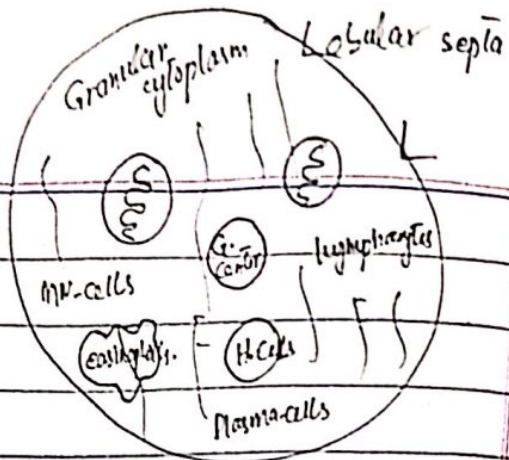 Granular
cytoplasm
Lobular septa
L
G.
Center
lymphocytes
MN-cells
H-Cells
Plasma-cells